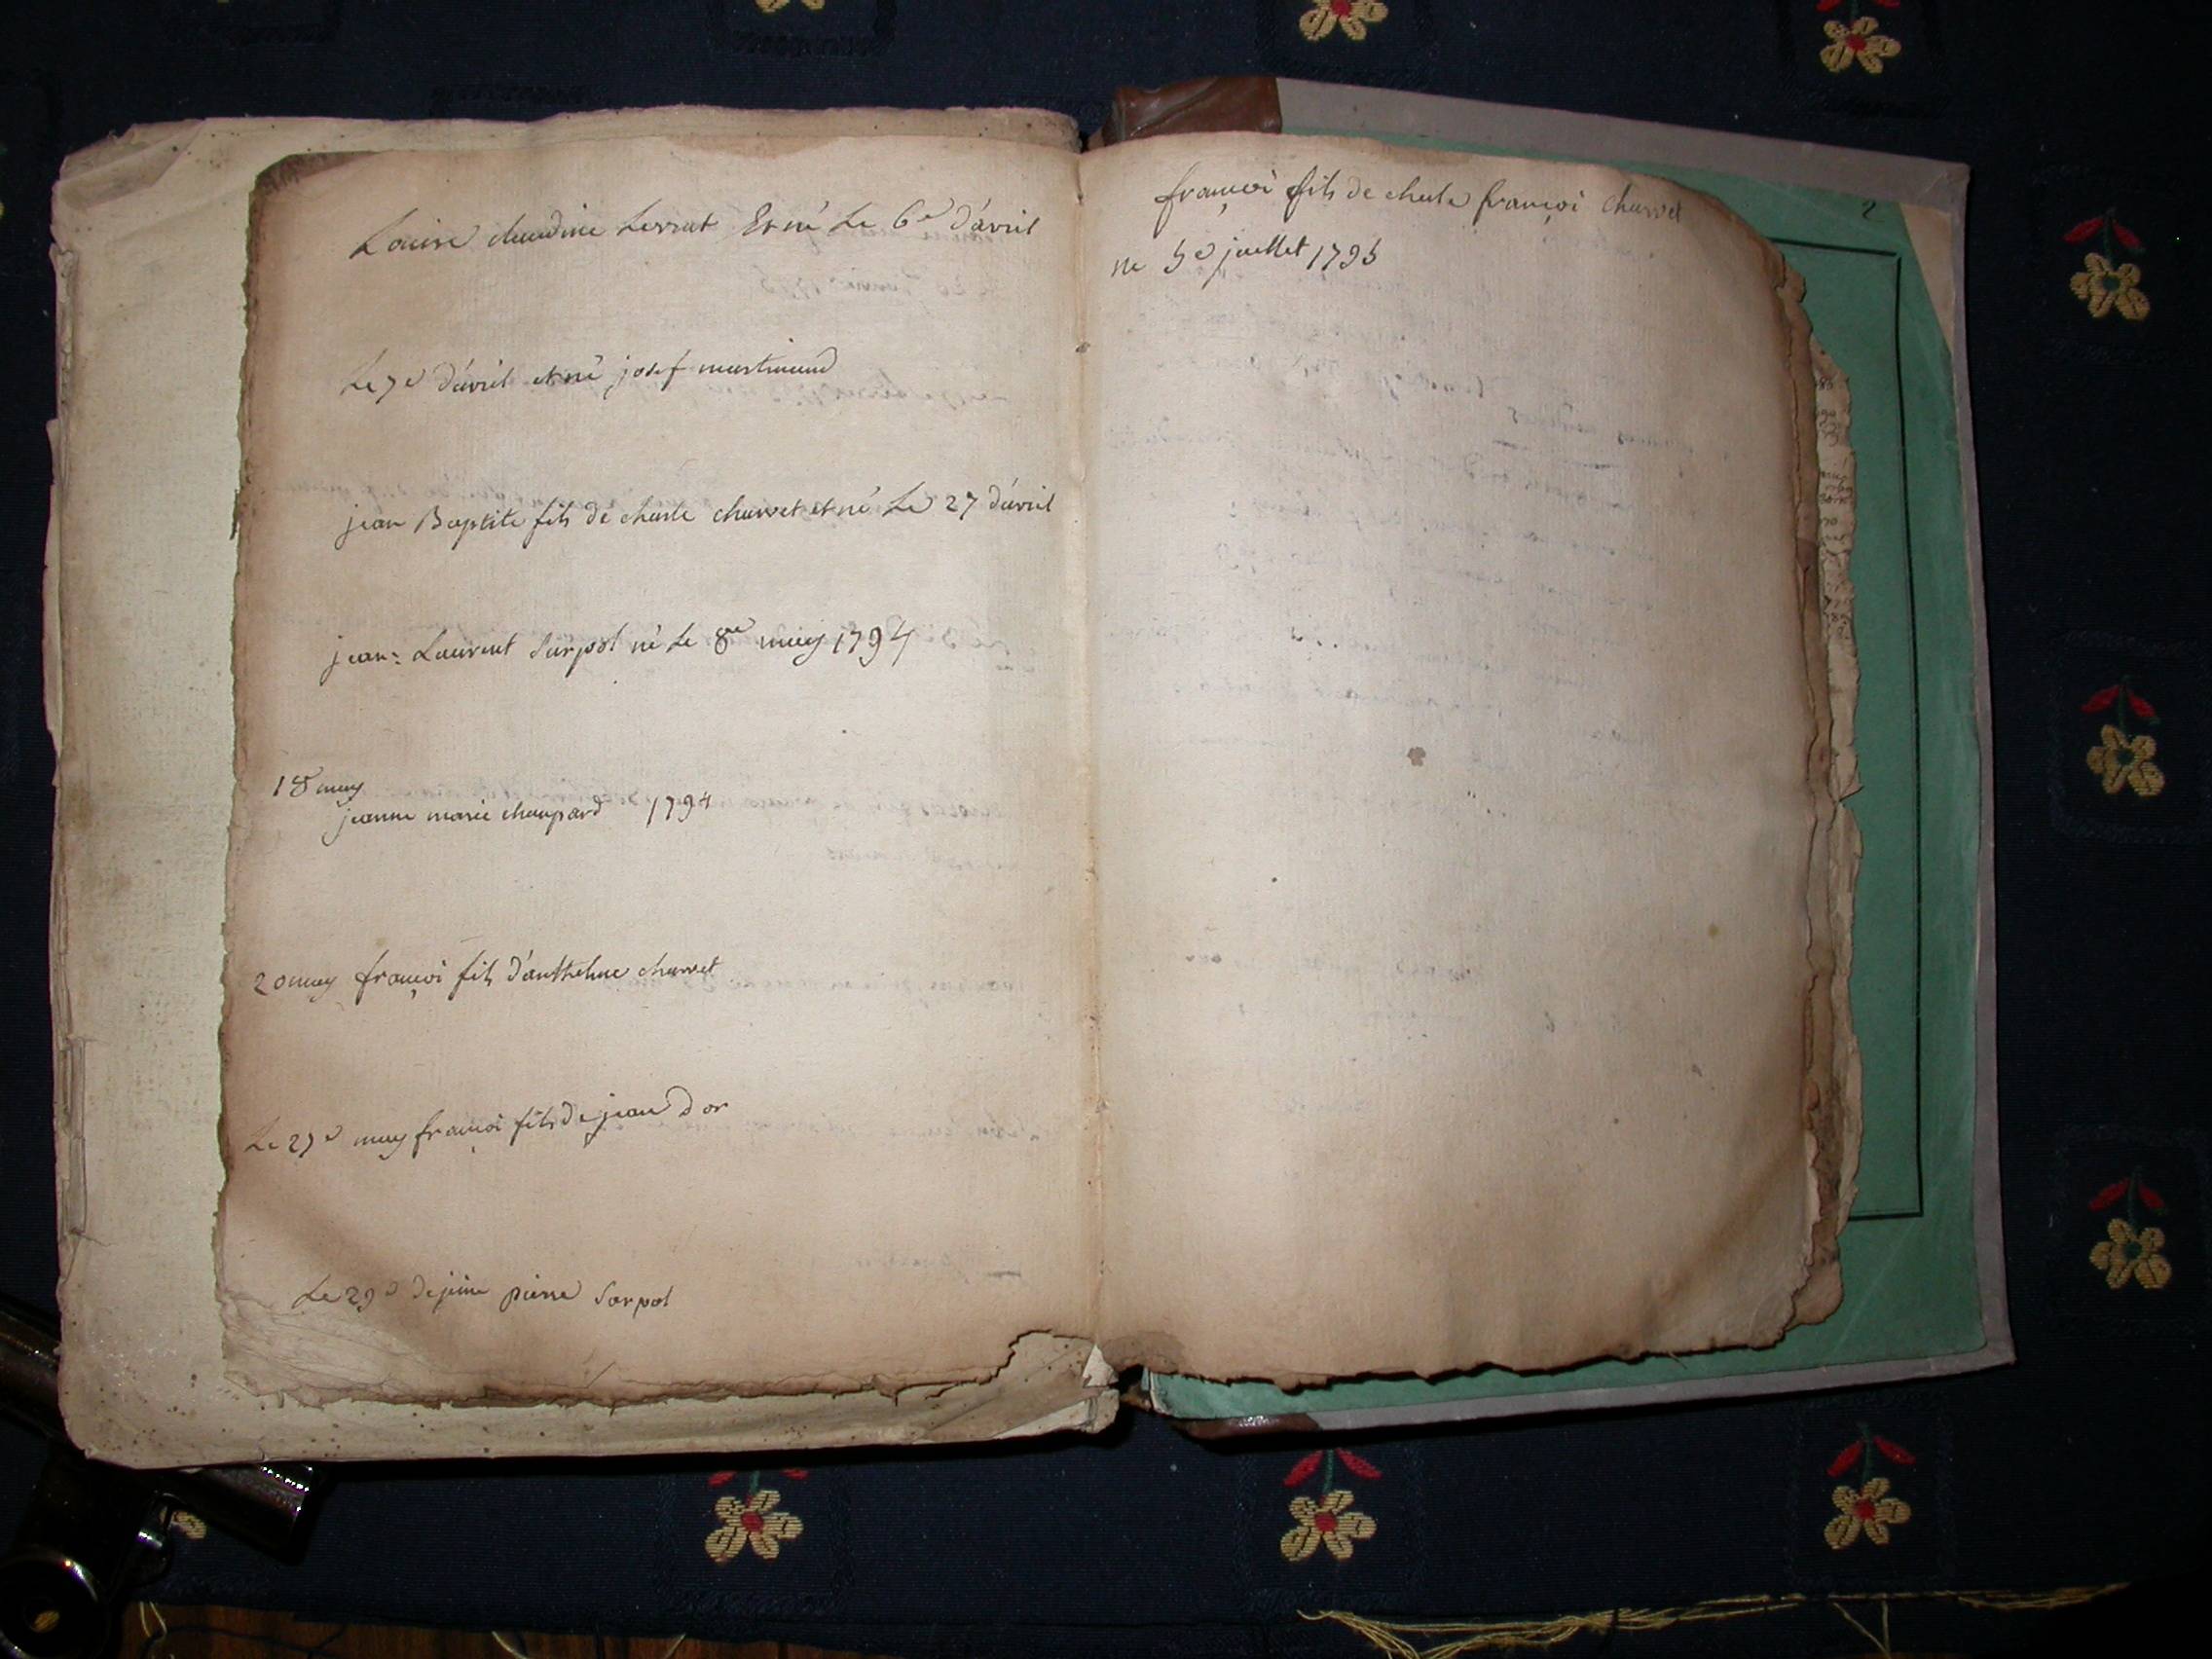 Louise claudine Lerrat Et né Le 6e d'avril
Le 7e d'avril et né josef martinand
jean Baptite fils de charle charvet et né Le 27 d'avril
jean: Laurent Sarpol né Le 8me may 1794
18 may
jeanne marie chappard 1794
20 may françoi fils d'anthelme charvet
Le 27e may françoi fils de jean d'or
Le 29e de juine pierre Sarpol
françoi fils de charle françoi charvet
ne 5e juellet 1795
2